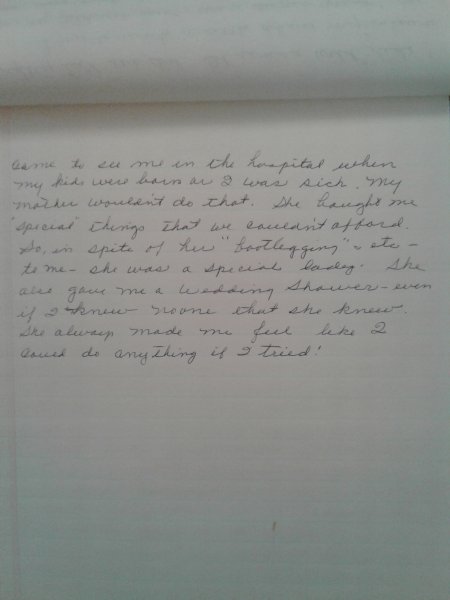 came to see me in the hospital when
my kids were born or I was sick. My
mother wouldn't do that. She bought me
"special" things that we couldn't afford.
So, in spite of her "bootlegging" & etc -
to me - she was a special lady. She
also gave me a Wedding Shower - even
if I knew noone that she knew.
She always made me feel like I
could do anything if I tried!